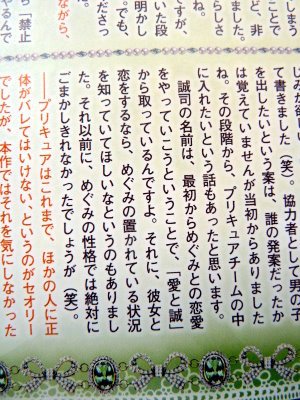 じみ欲し
て書きました（笑）。協力者として男の子
を出したいという案は、誰の発案だったか
は覚えていませんが当初からありました
ね。その段階から、プリキュアチームの中
に入れたいという話もあったと思います。
誠司の名前は、最初からめぐみとの恋愛
をやっていこうということで、「愛と誠」
から取っているんですよ。それに、彼女と
恋をするなら、めぐみの置かれている状況
を知っていてほしいなというのもありまし
た。それ以前に、めぐみの性格では絶対に
ごまかしきれなかったでしょうが（笑）。
──プリキュアはこれまで、ほかの人に正
体がバレてはいけない、というのがセオリー
でしたが、本作ではそれを気にしなかった
ながら、
ださっ
ても、
明かし
いた段
すが、
ました。
ど、非
し「禁止
やるんで